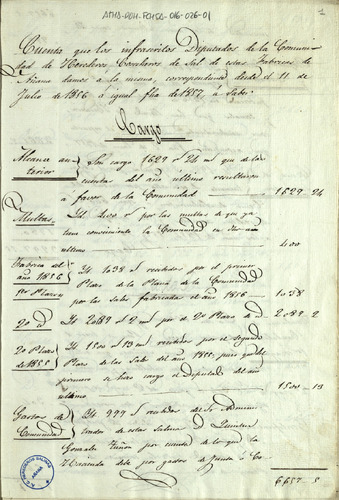 ATHA-DAH-FCHSA-016-026-01
1
Cuenta que los infrascritos Diputados de la Comuni-
dad de Herederos Caballeros de Sal de estas Fabricas de
Añana damos à la misma, correspondiente desde el 11 de
Julio de 1856 à igual fha de 1857, à Saber
Cargo
Alcance an-
terior
Son cargo 1629 r 24 m que de la
cuenta del año ultimo resultaron
à favor de la Comunidad 1629 24
Multas
Yt 400 r por las multas de que ya
tiene conocimiento la Comunidad en
ultimo 400
Fabrica del
año 1856
1er Plazo
Yt 1038 r recibidos por el primer
Plazo de la Plana de la Comunidad
por la Sal fabricada el año 1856 1038
2o id
Yt 2089 r 2 mrs por el 2o Plazo de id 2089 2
2o Plazo
de 1855
Yt 1500 r 13 m recibidos por el segundo
Plazo de la Sal del año 1855, pues que del
primero se hizo cargo el Diputado del año
ultimo 1500 13
Gastos de
Comunidad
Yt 999 r recibidos del Sr Adminis-
trador de estas Salinas D
Gonzalez por cuenta de lo que la
Hacienda debe por gastos de Junta
6657 5